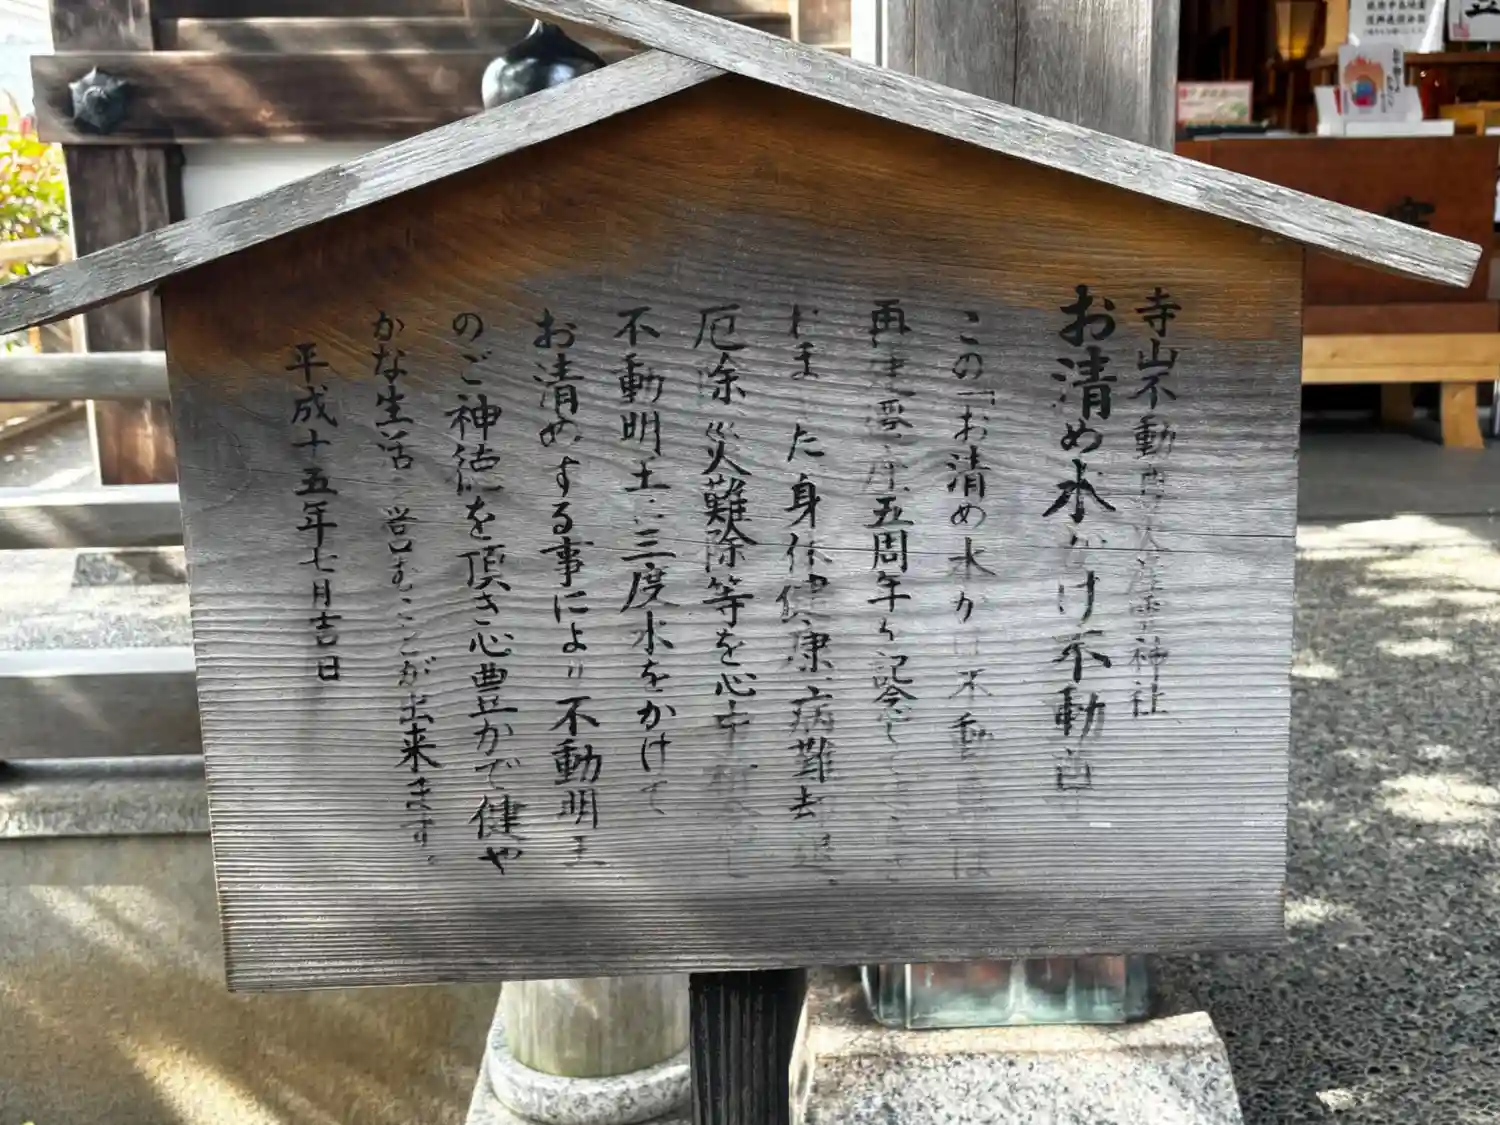 寺山不動尊火産霊神社
お清め水かけ不動尊
この「お清め水かけ不動尊」は
再建遷座五周年を記念して
じました身体健康、病難却退、
厄除、災難除等を心中
不動明王に三度水をかけて
お清めする事により不動明王
のご神徳を頂き心豊かで健や
かな生活を営むことが出来ます。
平成十五年七月吉日